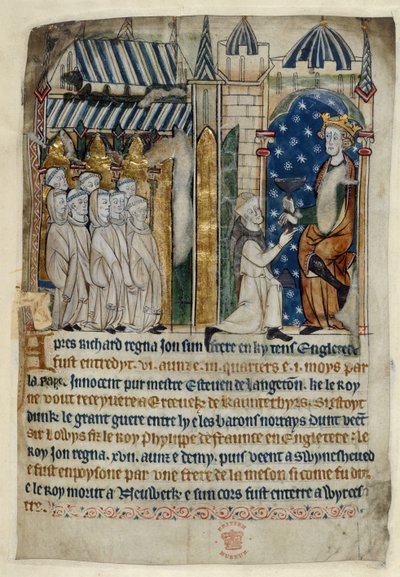 Apres Richard regna Jon sun frere en ky tens Engletere
fust entredyt .vi. aunz e .iii. quarters e .i. moys par
la Pape Innocent pur mestre Estevene de Langeton ke le Roy
ne vout receyvere a Erceuek de Kaunterbyrs. Si xstoyt
dunk le grant guere entre ly e les barons norrays dunt veent
sir Lowys fiz le Roy Phylippe de fraunce en Engletere. le
Roy Jon regna .xvii. aunz e demy. puis veent a Swynesheued
e fust enpoysone par une frere de la meson si come fu dit
e le Roy morut a Neuwerk e sun cors fust enterre a Wyrces
tre
BRITISH
MUSEUM